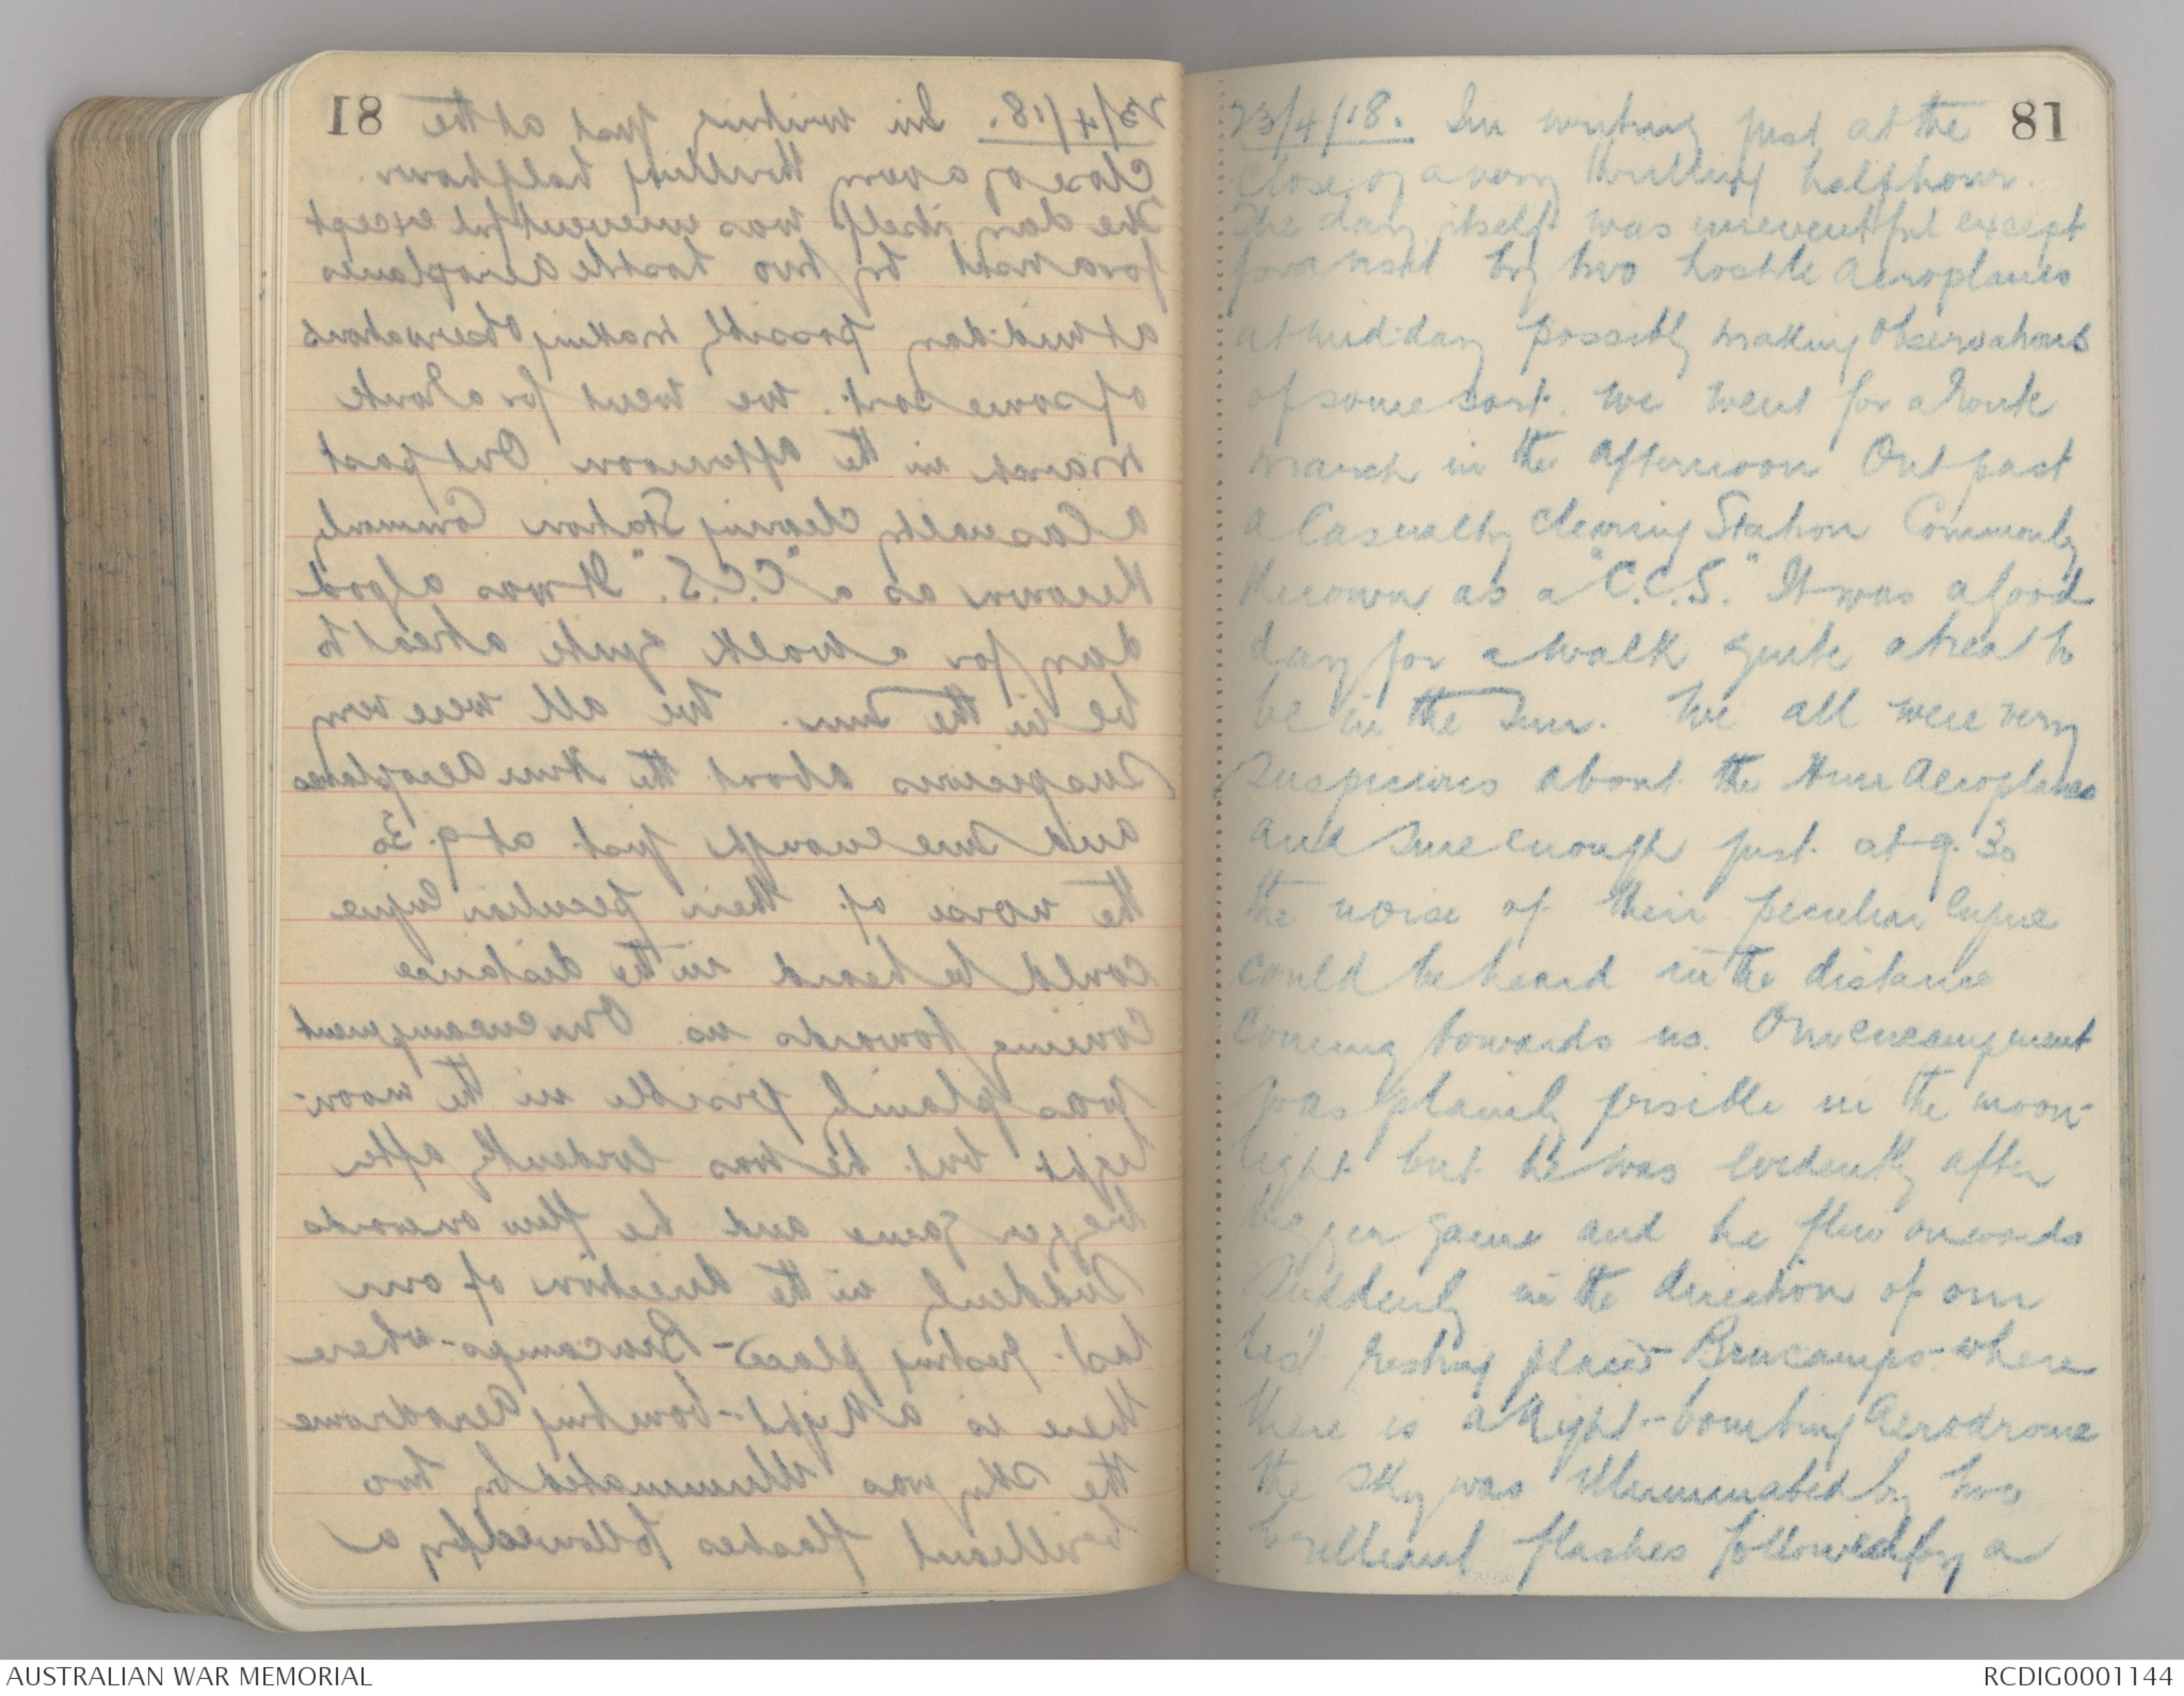 81
23/4/18. Im writing just at the
close of a very thrilling half hour.
The day itself was uneventful except
for a visit by two hostile aeroplanes
at mid-day possibly making observations
of some sort. We went for a route
march in the afternoon Out past
a Casualty Clearing Station Commonly
Known as a "C.C.S." It was a good
day for a walk quite a treat to
be in the Sun. We all were very
Suspicious about the Hun Aeroplanes
and sure enough just at 9.30
the noise of their peculiar engine
could be heard in the distance
Coming towards us. Our encampment
was plainly visible in the moon-
light but he was evidently after
bigger game and he flew onwards
Suddenly in the direction of our
last resting place - Brucamps - where
there is a Night-bombing Aerodrome
the sky was illuminated by two
brilliant flashes followed by a
AUSTRALIAN WAR MEMORIAL
RCDIG0001144